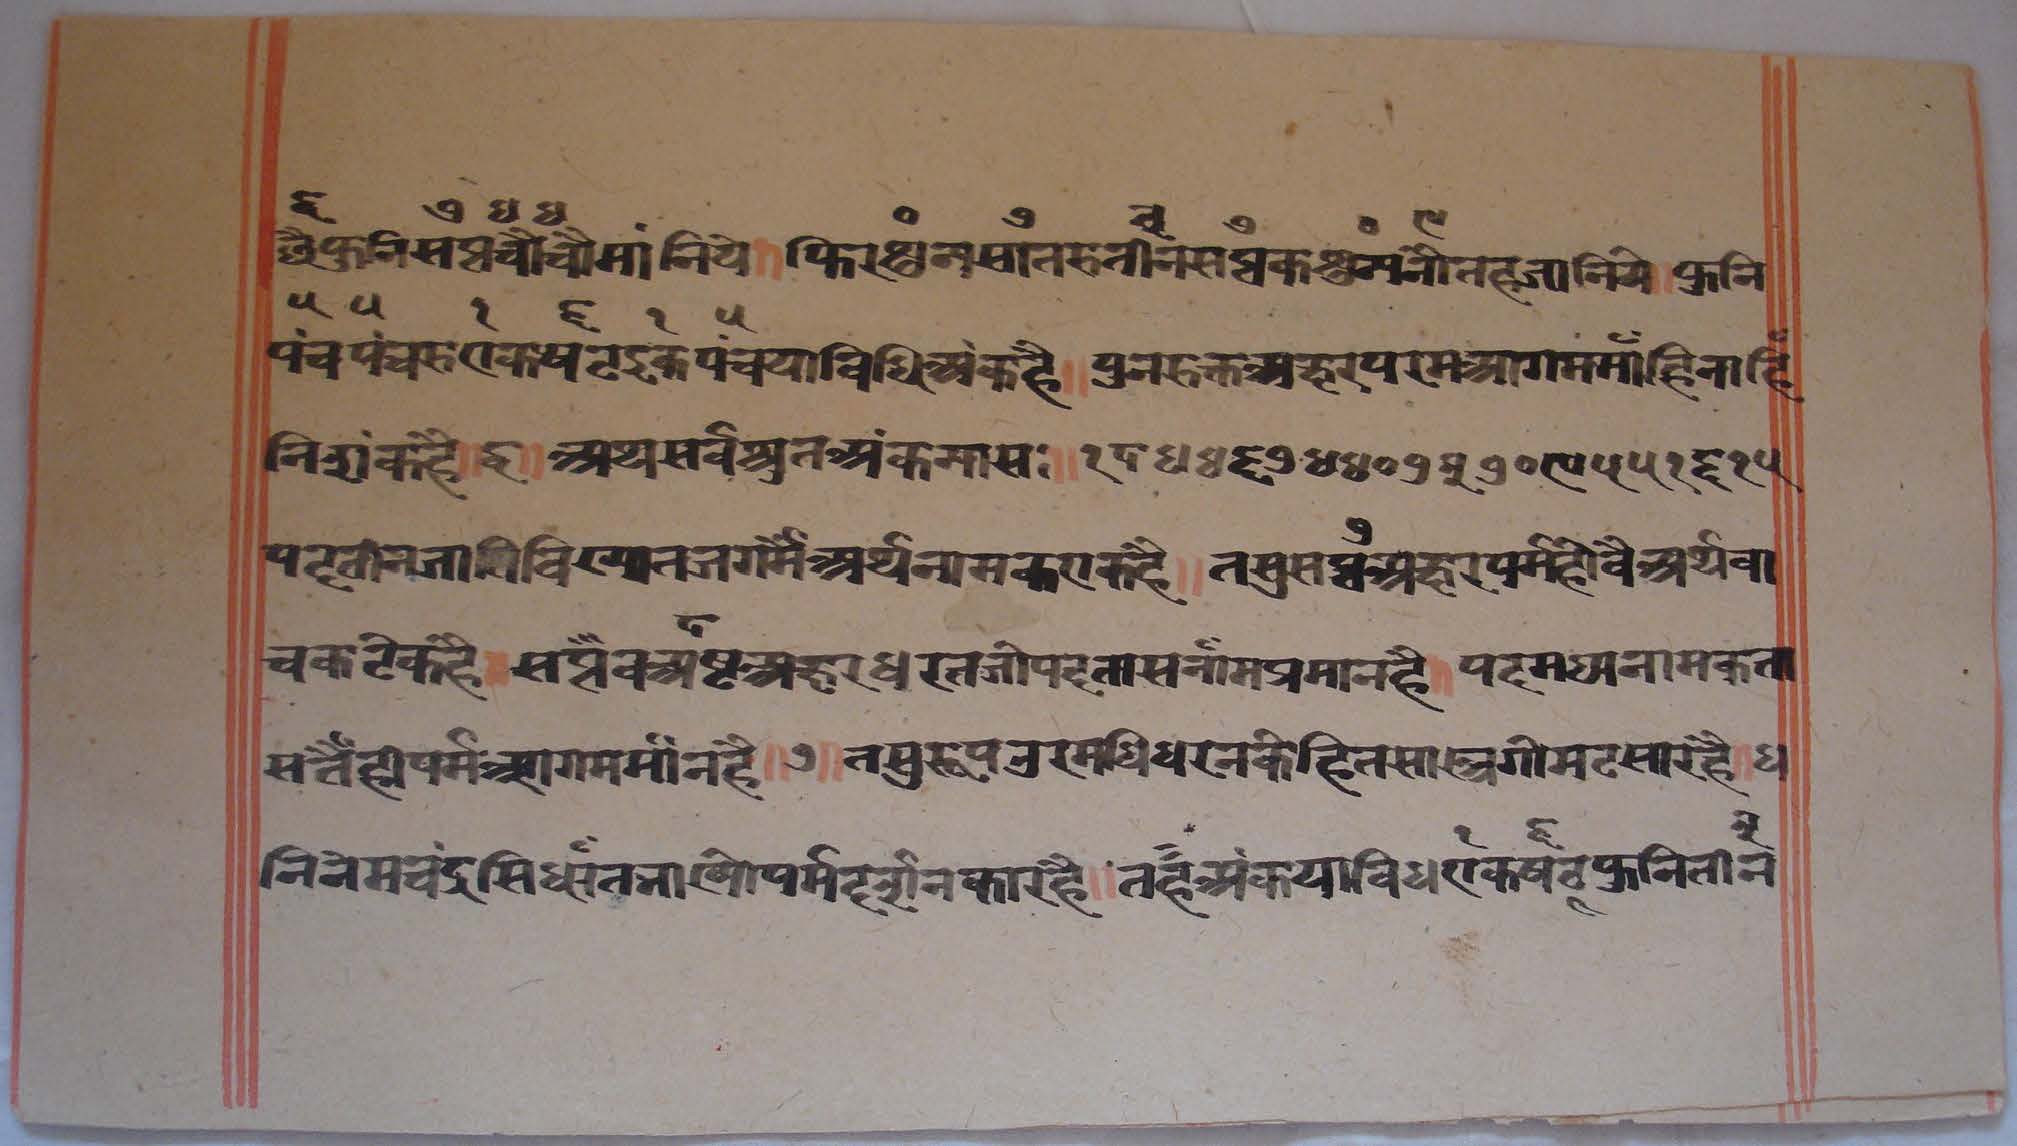 ६ ७ ४ ४ ० ७ ३ ७ ० ९
छैफुनिसप्तचौचौमांनिये॥ फिरशून्यसातरुतीनसप्तकशून्यनौतहजानिये॥ फुनि
५ ५ १ ६ १ ५
पंचपंचरुएकषटइकपंचयाविधिअंकहै॥ पुनरुक्तअक्षरपरमआगममांहिनाहि
निशांकहै॥६॥ अथसर्वश्रुतअंकमास॥ १८४४६७४४०७३७०९५५१६१५
पदतीनजातिविख्यातजगमैंअर्थनामकएकहै॥ तसुसप्तअक्षरपर्महोवैअर्थवा
७
चकटेकहै॥ सप्तैवअष्टअक्षरधरतजोपदतासनांमप्रमानहै॥ पदमध्यनामकता
८
सतैंहीपर्मआगममांनहै॥७॥ तसुरूपनुरमधिधरनकेहितसास्त्रगोमटसारहै॥ ध
निनेमचंद्रसिधांतनाख्योपर्मदर्शनकारहै॥ तहँअंकयाविधएकषटफुनितीन
१ ६ ३